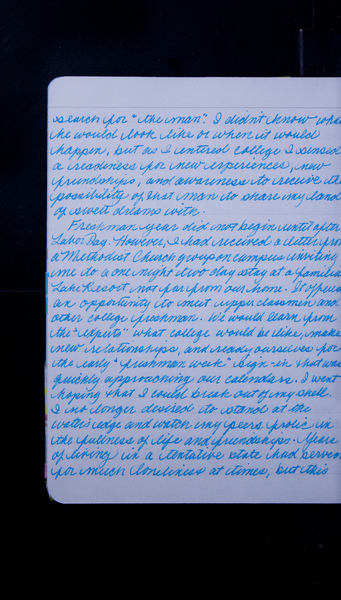 search for "the man". I didn't know what
he would look like or when it would
happen, but as I entered college I sensed
a readiness for new experiences, new
friendships, and awareness to receive the
possibility of that man to share my land
of sweet dreams with.
Freshman year did not begin until after
Labor Day. However, I had received a letter from
a Methodist Church group on campus inviting
me to a one night two day stay at a familiar
Lake Resort not far from our home. It offered
an opportunity to meet upper classmen and
other college freshman. We would learn from
the "experts" what college would be like, make
new relationships, and ready ourselves for
the early "freshman week" sign in that was
quickly approaching our calendars. I went
hoping that I could break out of my shell.
I no longer desired to stand at the
water's edge and watch my peers frolic in
the fullness of life and friendships. Years
of living in a tentative state had served
for much loneliness at times, but this